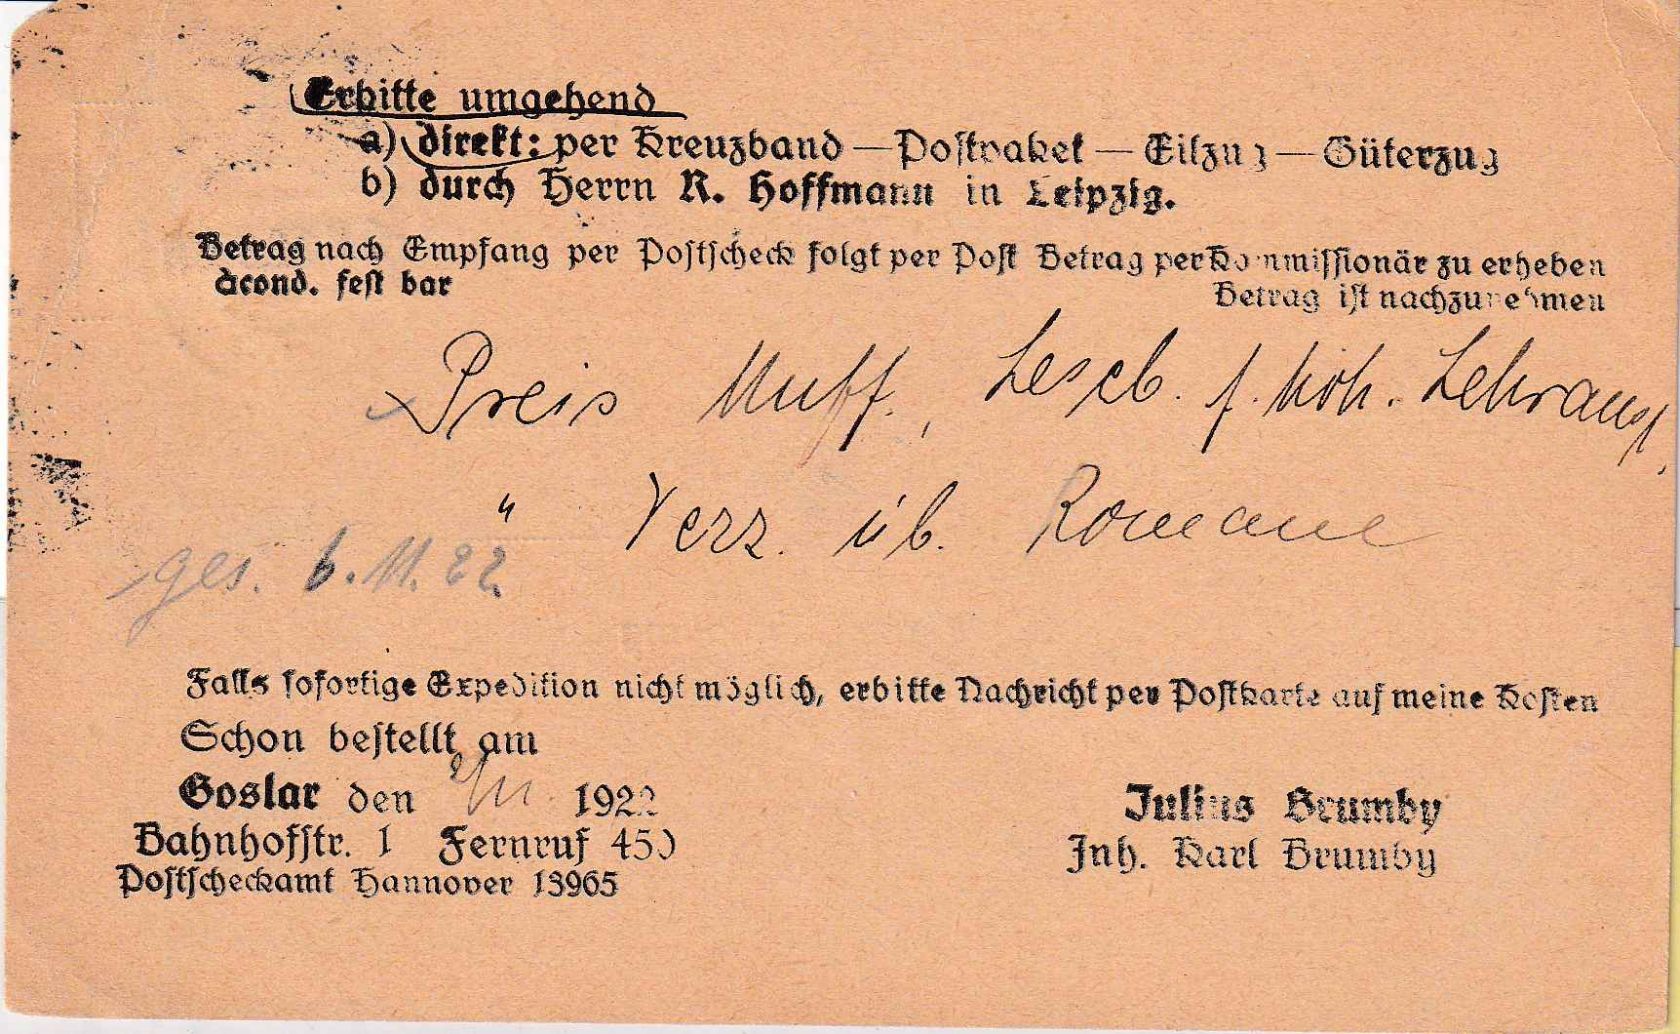 Erbitte umgehend
a) direkt: per Kreuzband — Postpaket — Eilzug — Güterzug
b) durch Herrn R. Hoffmann in Leipzig.
Betrag nach Empfang per Postscheck folgt per Post Betrag per Kommissionär zu erheben
àcond. fest bar Betrag ist nachzunehmen
Preis Muff, Leseb. f. höh. Lehranst,
" Verz. üb. Romane
ges. 6.11.22
Falls sofortige Expedition nicht möglich, erbitte Nachricht per Postkarte auf meine Kosten
Schon bestellt am
Goslar den 2/11. 1922
Bahnhofstr. 1 Fernruf 450
Postscheckamt Hannover 13965
Julius Brumby
Inh. Karl Brumby